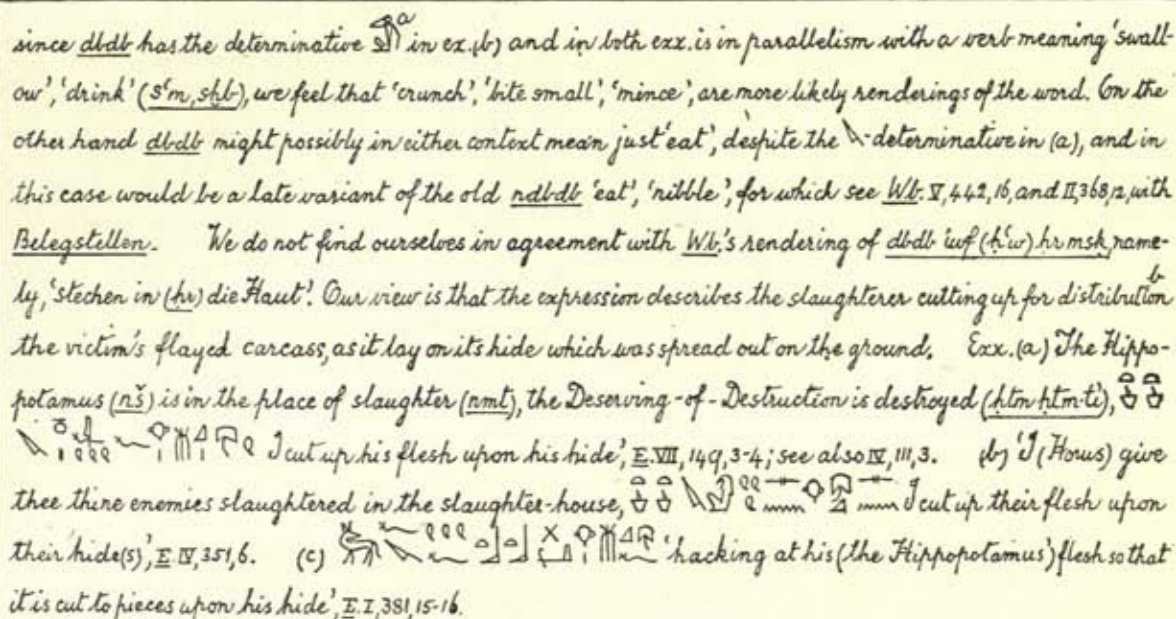 since dbdb has the determinative a in ex. (b) and in both exx. is in parallelism with a verb meaning 'swall-
ow', 'drink' (sꜥm, sḫb), we feel that 'crunch', 'bite small', 'mince', are more likely renderings of the word. On the
other hand dbdb might possibly in either context mean just 'eat', despite the -determinative in (a), and in
this case would be a late variant of the old ndbdb 'eat', 'nibble', for which see Wb. V, 442, 16, and II, 368, 12, with
Belegstellen. We do not find ourselves in agreement with Wb.'s rendering of dbdb iwf (ḥꜥw) ḥr msk, name-
ly, 'stechen in (ḥr) die Haut'. Our view is that the expression describes the slaughterer cutting up for distribution b
the victim's flayed carcass, as it lay on its hide which was spread out on the ground. Exx. (a) The Hippo-
potamus (nš) is in the place of slaughter (nmt), the Deserving-of-Destruction is destroyed (ḥtm ḥtm·ti),
I cut up his flesh upon his hide', E. VII, 149, 3-4; see also IV, 111, 3. (b) 'I (Horus) give
thee thine enemies slaughtered in the slaughter-house, I cut up their flesh upon
their hide(s)', E. IV, 351, 6. (c) 'hacking at his (the Hippopotamus') flesh so that
it is cut to pieces upon his hide', E. I, 381, 15-16.